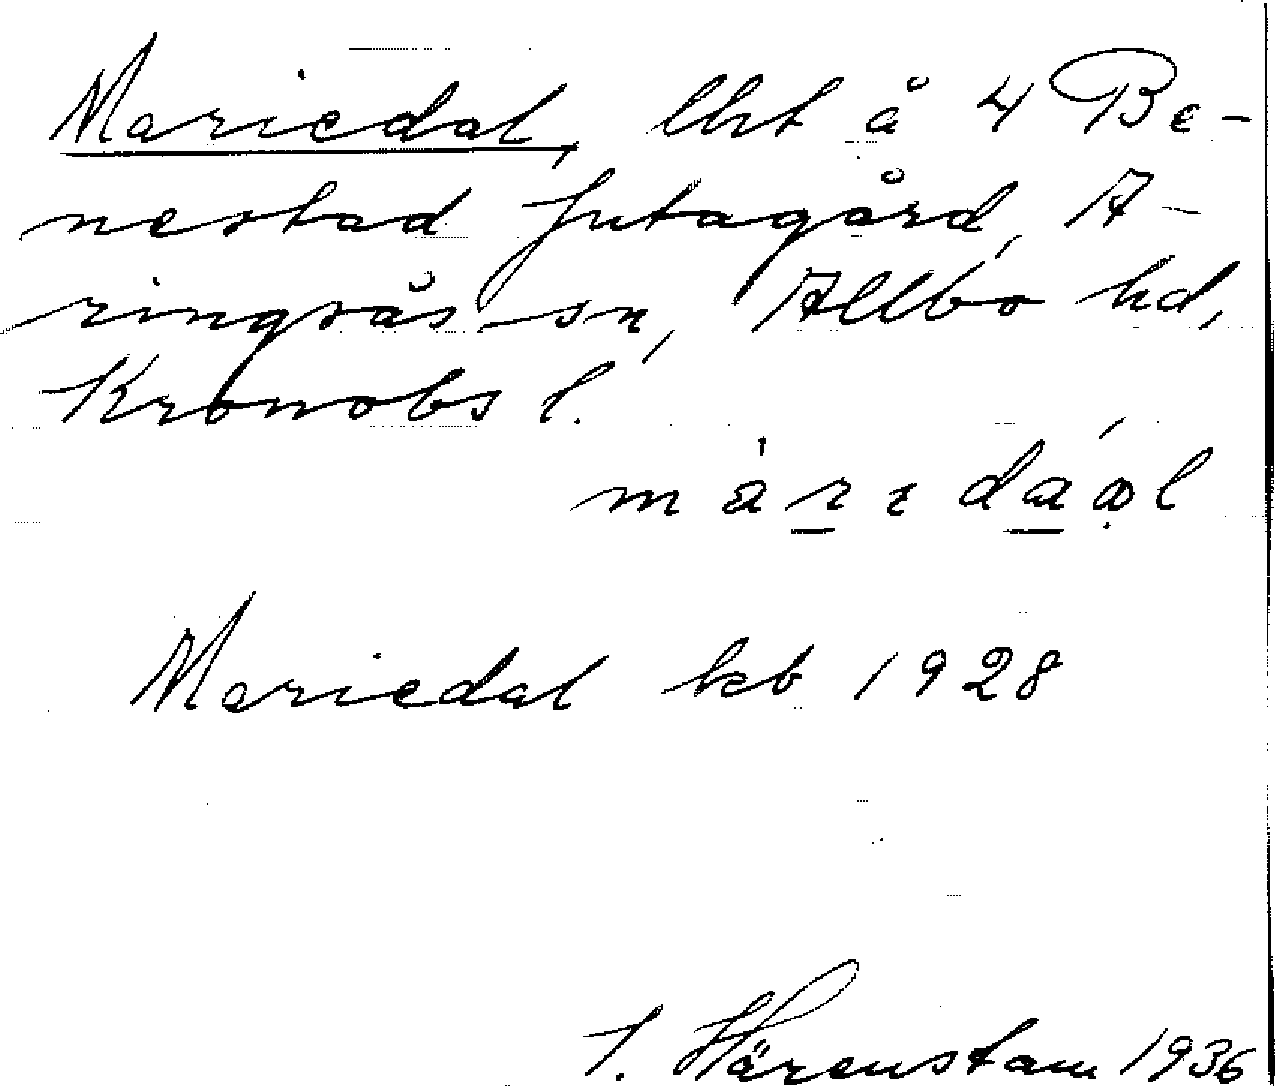 Mariedal, lht å 4 Be-
nestad Jutagård, A-
ringsås sn, Allbo hd,
Kronobs l.
Mariedal kb 1928
J. Härenstam 1936